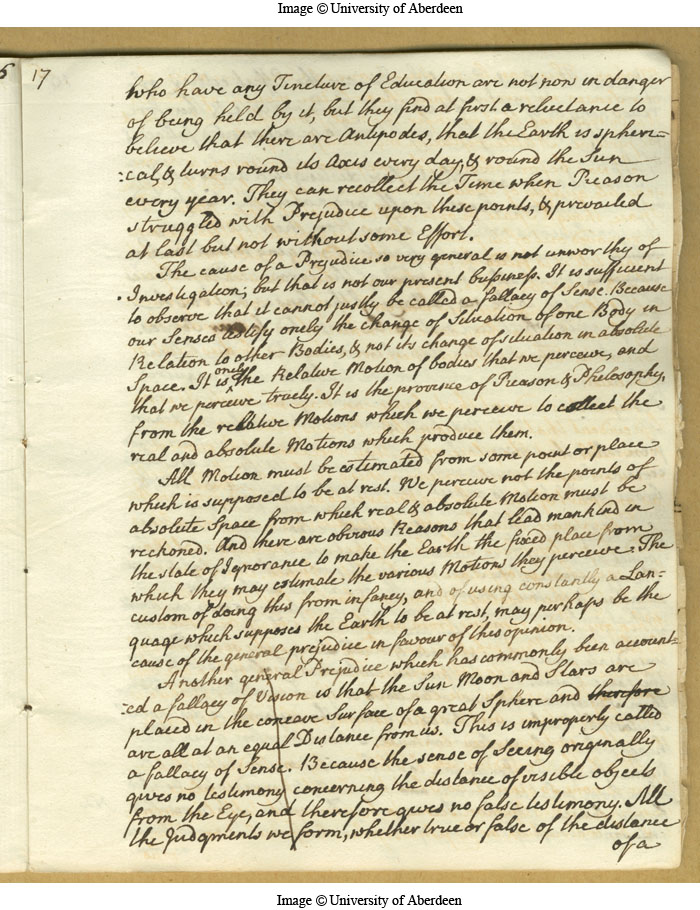 Image © University of Aberdeen
5 17
who have any Tincture of Education are not now in danger
of being held by it, but they find at first a reluctance to
believe that there are Antipodes, that the Earth is spheri=
:cal, & turns round its Axis every day, & round the Sun
every year. They can recollect the Time when Reason
struggled with Prejudice upon these points, & prevailed
at last but not without some Effort.
The cause of a Prejudice so very general is not unworthy of
Investigation; but that is not our present business. It is sufficient
to observe that it cannot justly be called a fallacy of Sense. Because
our Senses testify onely the change of Situation of one Body in
Relation to other Bodies, & not its change of situation in absolute
Space. It is only the Relative Motion of bodies that we perceive, and
that we perceive truely. It is the province of Reason & Philosophy,
from the relative Motions which we perceive to collect the
real and absolute Motions which produce them.
All Motion must be estimated from some point or place
which is supposed to be at rest. We perceive not the points of
absolute Space from which real & absolute Motion must be
reckoned. And there are obvious Reasons that lead mankind in
the state of Ignorance to make the Earth the fixed place from
which they may estimate the various Motions they perceive. The
custom of doing this from infancy, and of using constantly a Lan=
guage which supposes the Earth to be at rest, may perhaps be the
cause of the general prejudice in favour of this opinion.
Another general Prejudice which has commonly been account=
:ed a fallacy of Vision is that the Sun Moon and Stars are
placed in the concave Surface of a great Sphere and therefore
are all at an equal Distance from us. This is improperly called
a fallacy of Sense. Because the sense of Seeing originally
gives no testimony concerning the distance of visible objects
from the Eye, and therefore gives no false testimony. All
the Judgments we form, whether true or false of the distance
of a
Image © University of Aberdeen